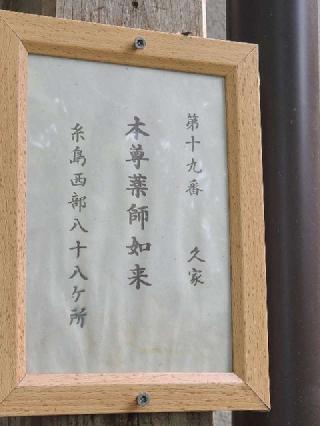 第十九番　久家
本尊薬師如来
糸島西部八十八ケ所